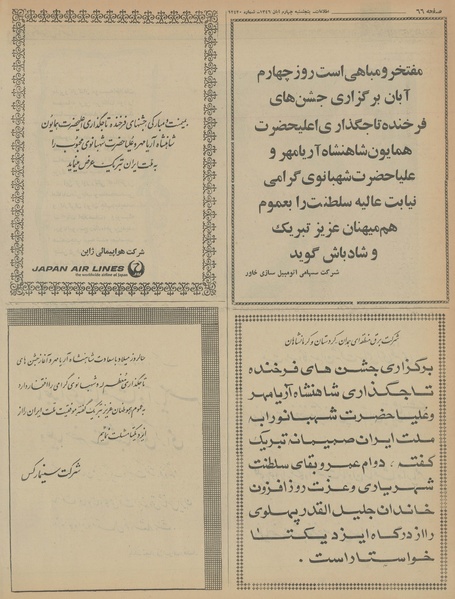 صفحه ۶۶
اطلاعات پنجشنبه چهارم آبان ۱۳۴۶ شماره
مفتخر و مباهی است روز چهارم
آبان برگزاری جشن‌های
فرخنده تاجگذاری اعلیحضرت
همایون شاهنشاه آریامهر و
علیاحضرت شهبانوی گرامی
نیابت عالیه سلطنت را بعموم
هم‌میهنان عزیز تبریک
و شادباش گوید
شرکت سهامی اتومبیل سازی خاور
بمیمنت و مبارکی جشنهای فرخنده تاجگذاری اعلیحضرت همایون
شاهنشاه آریامهر و علیاحضرت شهبانوی محبوب را
به ملت ایران تبریک عرض مینماید
شرکت هواپیمائی ژاپن
JAPAN AIR LINES
the worldwide airline of Japan
شرکت برق منطقه‌ای همدان، کردستان و کرمانشاهان
برگزاری جشن های فرخنده
تاجگذاری شاهنشاه آریامهر
و علیا حضرت شهبانو را به
ملت ایران صمیمانه تبریک
گفته ، دوام عمر و بقای سلطنت
شهریاری و عزت روزافزون
خاندان جلیل القدر پهلوی
را از درگاه ایزد یکتا
خواستار است .
سالروز میلاد با سعادت شاهنشاه آریامهر و آغاز جشن های
تاجگذاری معظم له و شهبانوی گرامی را افتخار دارد
به عموم هموطنان عزیز تبریک گفته موفقیت ملت ایران را از
ایزد یکتا مسئلت نمائیم
شرکت سینمارکس